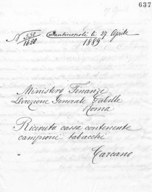 637
N
Montecorvoli li 27 Aprile
1889
Ministero Finanze
Direzione Generale Gabelle
Roma
Ricevuto cassa contenente
campioni tabacchi
Carcano